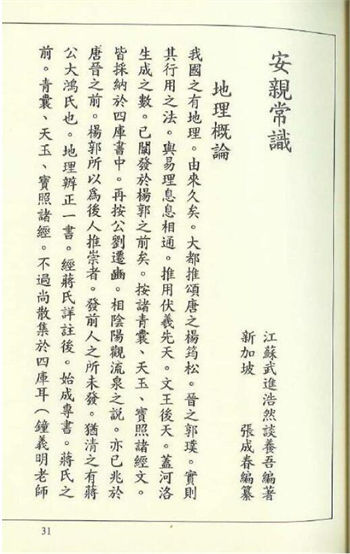 安親常識
江蘇武進浩然談養吾編著
新加坡 張成春編纂
地理概論
我國之有地理。由來久矣。大都推頌唐之楊筠松。晉之郭璞。實則
其行用之法。與易理息息相通。推用伏羲先天。文王後天。蓋河洛
生成之數。已闡發於楊郭之前矣。按諸青囊、天玉、寶照諸經文。
皆採納於四庫書中。再按公劉遷豳。相陰陽觀流泉之說。亦已兆於
唐晉之前。楊郭所以為後人推崇者。發前人之所未發。猶清之有蔣
公大鴻氏也。地理辨正一書。經蔣氏詳註後。始成專書。蔣氏之
前。青囊、天玉、寶照諸經。不過尚散集於四庫耳（鐘義明老師
31